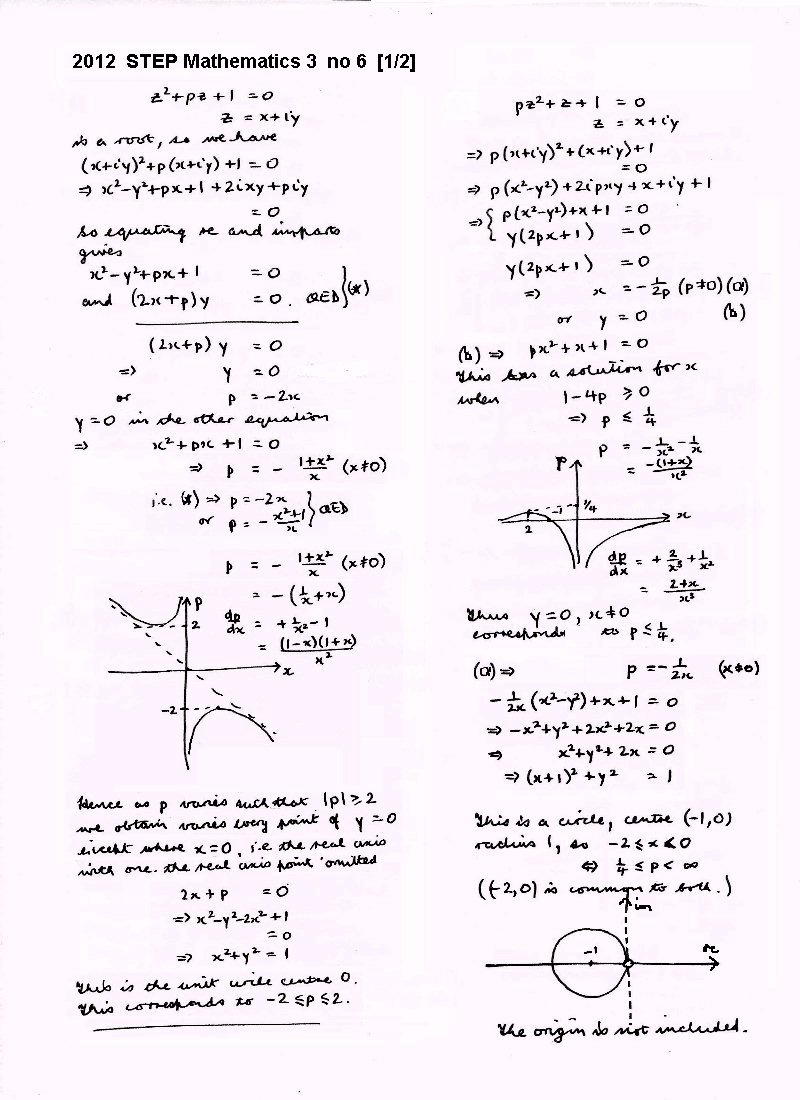 2012 STEP Mathematics 3 no 6 [1/2]
z²+pz+1 = 0
z = x+iy
is a root, so we have
(x+iy)²+p(x+iy)+1 = 0
⇒ x²-y²+px+1+2ixy+piy
= 0
so equating re and im parts
gives
x²-y²+px+1 = 0
and (2x+p)y = 0. QED }(*)
(2x+p) y = 0
⇒ y = 0
or p = -2x
y=0 in the other equation
⇒ x²+px+1 = 0
⇒ p = - (1+x²)/x (x≠0)
i.e. (*) ⇒ p = -2x
or p = - (x²+1)/x } QED
p = - (1+x²)/x (x≠0)
= -(1/x+x)
dp/dx = +1/x²-1
= (1-x)(1+x)/x²
p
2
x
-2
Hence as p varies such that |p|≥2
we obtain varies every point of y=0
except where x=0, i.e. the real axis
with one. the real axis point omitted
2x+p = 0
⇒ x²-y²-2x²+1
= 0
⇒ x²+y² = 1
This is the unit circle centre 0.
This corresponds to -2≤p≤2.
pz²+z+1 = 0
z = x+iy
⇒ p(x+iy)²+(x+iy)+1
= 0
⇒ p(x²-y²)+2ipxy+x+iy+1
⇒ { p(x²-y²)+x+1 = 0
y(2px+1) = 0
y(2px+1) = 0
⇒ x = -1/2p (p≠0) (a)
or y = 0 (b)
(b) ⇒ px²+x+1 = 0
This has a solution for x
when 1-4p ≥ 0
⇒ p ≤ 1/4
p = -1/x²-1/x
= -(1+x)/x²
p
-1
1/4
x
2
dp/dx = +2/x³+1/x²
= (2+x)/x³
Thus y=0, x≠0
corresponds to p≤1/4.
(a) ⇒ p = -1/2x (x≠0)
-1/2x (x²-y²)+x+1 = 0
⇒ -x²+y²+2x²+2x = 0
⇒ x²+y²+2x = 0
⇒ (x+1)²+y² = 1
This is a circle, centre (-1,0)
radius 1, so -2≤x<0
⇔ 1/4 ≤ p < ∞
((-2,0) is common to both.)
im
-1
re
The origin is not included.